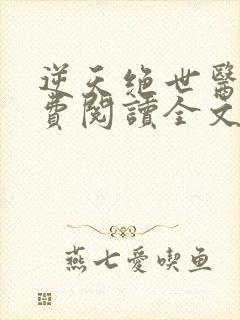 逆天绝世醫
費閱讀全文
燕七愛喫鱼